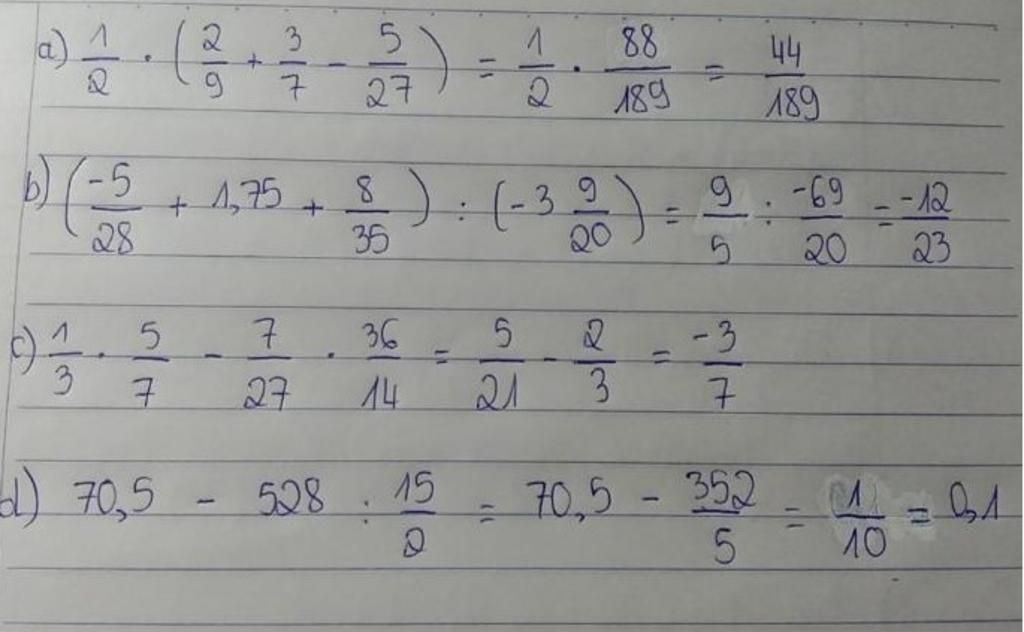 a) 1/2 · (2/9 + 3/7 - 5/27) = 1/2 · 88/189 = 44/189
b) (-5/28 + 1,75 + 8/35) : (-3 9/20) = 9/5 : -69/20 = -12/23
c) 1/3 · 5/7 - 7/27 · 36/14 = 5/21 - 2/3 = -3/7
d) 70,5 - 528 : 15/2 = 70,5 - 352/5 = 1/10 = 0,1